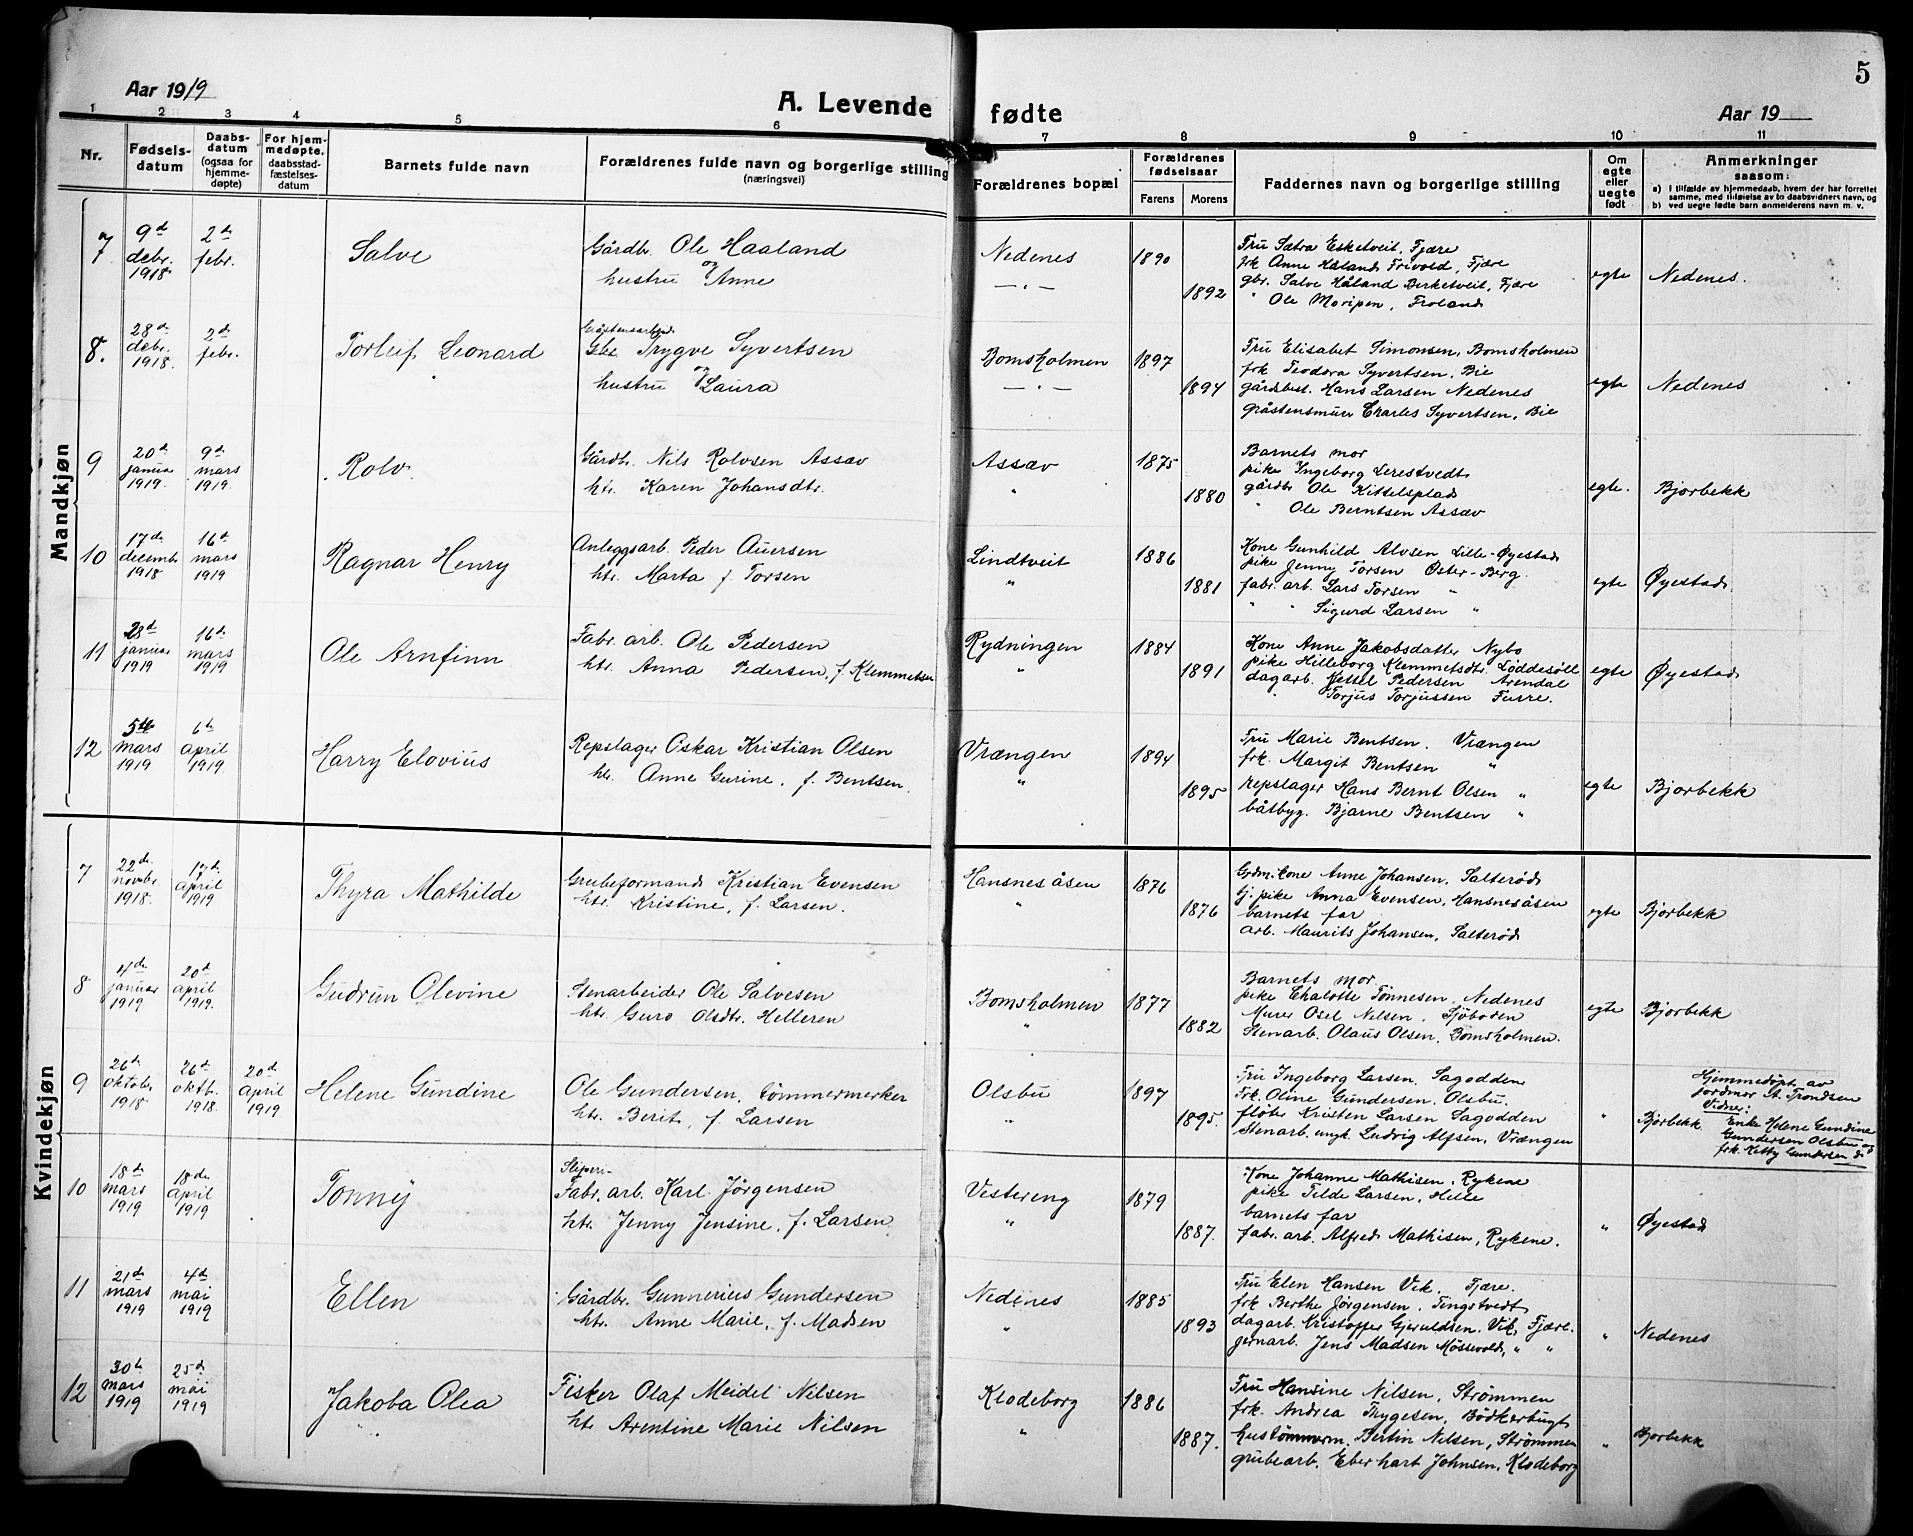 5
Aar 1919
A. Levende fødte
Aar 19
1 2 3 4 5 6 7 8 9 10 11
Nr.
Fødsels-
datum
Daabs-
datum
(ogsaa for
hjemme-
døpte)
For hjem-
medøpte.
daabsstad-
fæstelses-
datum
Barnets fulde navn
Forældrenes fulde navn og borgerlige stilling
(næringsvei)
Forældrenes bopæl
Forældrenes
fødselsaar
Farens Morens
Faddernes navn og borgerlige stilling
Om
egte
eller
uegte
født
Anmerkninger
saasom:
a) I tilfælde av hjemmedaab, hvem der har forrettet
samme, med tilføielse av to daabsvidners navn, og
b) ved uegte fødte barn anmelderens navn m. v.
Mandkjøn
7
9d
debr.
1918
2d
febr.
Salve
Gårdb. Ole Haaland
og
hustru Anne
Nedenes
— " —
1890
1892
Fru Sætra Esketveit, Fjære
frk Anne Håland Frivold, Fjære
gbr. Salve Håland Birketveit, Fjære
" Ole Moripen, Froland
egte
Nedenes.
8.
28d
debr.
1918.
2d
febr.
Torleif Leonard
Gråstensarbeid.
Trygve Syvertsen
og
hustru Laura
Bomsholmen
— " —
1897
1894
Fru Elisabet Simonsen, Bomsholmen
frk Teodora Syvertsen, Bie
gårdbest. Hans Larsen Nedenes
gråstensmurer Charles Syvertsen, Bie
egte
Nedenes
9
20d
januar
1919.
9d
mars
1919.
Rolv.
Gårdb. Nils Rolvsen Assav
htr. Karen Johansdtr.
Assæv
"
1875
1880
Barnets mor
pike Ingeborg Lerestvedt
gårdbr Ole Kittelsplads
" Ole Berntsen Assæv
egte.
Bjorbekk
10
17de
decembr
1918
16d
mars
1919
Ragnar Henry
Anleggsarb. Peder Auersen
htr. Marta f. Torsen
Lindtveit
"
1886
1881
Kone Gunhild Alvsen Lille-Øyestad
pike Jenny Torsen Øster-Berg.
fabr. arb. Lars Torsen "
" " Sigurd Larsen "
egte
Øyestad.
11
28d
januar
1919
16d
mars
1919
Ole Arnfinn
Fabr. arb. Ole Pedersen
htr. Anna Pedersen, f. Klemmetsen
Rydningen
"
1884
1891
Kone Anne Jakobsdatter Nybo
pike Hilleborg Klemmetsdtr. Løddesøll
dagarb. Kettel Pedersen Arendal
" Torjus Torjussen Furre.
egte
Øyestad
12
5te
mars
1919
6te
april
1919.
Harry Elovius
Repslager Oskar Kristian Olsen
htr. Anne Gurine, f. Bentsen.
Vrængen
"
1894
1895
Fru Marie Bentsen. Vrængen
frk. Margit Bentsen "
repslager Hans Bernt Olsen "
båtbyg. Bjarne Bentsen "
egte
Bjorbekk
Kvindekjøn
7
22de
novbr
1918.
17d
april
1919
Thyra Mathilde
Grubeformand Kristian Evensen
htr. Kristine, f. Larsen.
Hansnesåsen
"
1876
1876
Grdm. kone Anne Johansen, Salterød
Gj. pike Anna Evensen, Hansnesåsen
barnets far
arb. Maurits Johansen, Salterød
egte
Bjorbekk
8
4de
januar
1919
20d
april
1919.
Gudrun Olevine
Stenarbeider Ole Salvesen
htr. Guro Olsdtr. Helleren
Bomsholmen
"
1877
1882
Barnets mor
pike Charlotte Tønnesen, Nedenes
Murer Osel Nilsen, Sjøboden
Stenarb. Olaus Olsen, Bomsholmen.
egte
Bjorbekk
9
26de
oktober
1918
26d
oktb.
1918.
20d
april
1919
Helene Gundine
Ole Gundersen, tømmermerker
htr. Berit, f. Larsen
Olsbu
"
1897
1895.
Fru Ingeborg Larsen, Sagodden
Frk. Oline Gundersen, Olsbu.
fløter Kristen Larsen Sagodden
Stenarb. ungk. Ludvig Alfsen, Vrængen
"
Bjorbekk
Hjemmedøpt av
jordmor St. Trondsen
Vidner:
Enke Helene Gundine
Gundersen Olsbu og
frk. Kitty Gundersen
10
18d
mars
1919
18de
april
1919
Tonny
Sliperi-
Fabr. arb. Karl Jørgensen
htr. Jenny Jensine, f. Larsen
Vestereng
"
1879
1887.
Kone Johanne Mathisen, Rykene
pike Tilde Larsen, Helle
barnets far
fabr. arb. Alfred Mathisen, Rykene.
"
Øyestad
11
21de
mars
1919
4d
mai
1919
Ellen
Gårdbr. Gunnerius Gundersen
htr. Anne Marie, f. Madsen
Nedenes
"
1885
1893
Fru Elen Hansen Vik, Fjære.
frk. Berthe Jørgensen, Tingstvedt
dagarb. Kristoffer Gjeruldsen, Vik, Fjære.
jernarb. Jens Madsen Møssevold, " "
"
Nedenes
12
30te
mars
1919
25d
mai
1919
Jakoba Olea
Fisker Olaf Meidel Nilsen
htr Arentine Marie Nilsen
Klodeborg
"
1886
1887.
Fru Hansine Nilsen, Strømmen
frk. Andrea Thygesen, Bødkerbugt
hustømmerm. Bertin Nilsen, Strømmen
grubearb. Eberhart Johnsen, Klodeborg
"
Bjorbekk